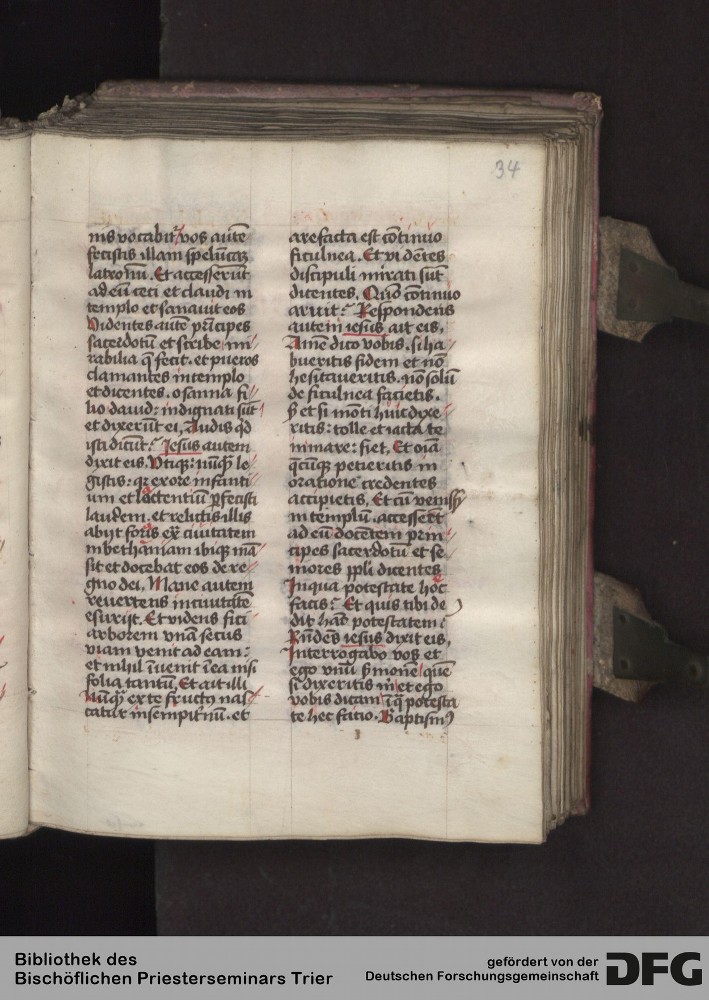 34
nis vocabit᷑ vos autē
fecistis illam spelūcaꝫ
latronū. Et accesserūt
ad eū ceci et claudi in
templo et sanauit eos
Videntes autē prīcipes
sacerdotū et scribe mi
rabilia q̄ fecit. et pueros
clamantes in templo
et dicentes. osanna fi
lio dauid: indignati sūt
et dixerūt ei, Audis qd̄
isti dicūt? Jesus autem
dixit eis. Vtiqꝫ: nūqꝫ le
gistis: qꝫ ex ore infanti
um et lactentium ꝑfecisti
laudem. et relictis illis
abijt foris ex̄ ciuitatem
in bethaniam ibiqꝫ mā
sit et docebat eos de re
gno dei, Mane autem
reuertens in ciuitatē
esurijt. Et videns fici
arborem vnā secus
viam venit ad eam:
et nihil īuenit ī ea nisi
folia tantū, Et ait illi
Nūqꝫ ex te fructꝰ nas
catur in sempit᷑nū. et
arefacta est cōtinuo
ficulnea. Et vidētes
discipuli mirati sūt
dicentes, Quō cōtinuo
aruit? Respondens
autem iesus ait eis,
Amē dico vobis. si ha
bueritis fidem et nō
hesitaueritis. nō solū
de ficulnea facietis.
sꝫ et si mōti huic dixe
ritis: tolle et iacta te
in mare: fiet, Et oīa
q̄cūqꝫ petieritis in
oratione credentes
accipietis, Et cū venissꝫ
in templū. accesserūt
ad eū docētem prin
cipes sacerdotū et se
niores ppli dicentes
In qua potestate hoc
facis? Et quis tibi de
dit hāc potestatem?
Rn̄dēs iesus dixit eis,
Interrogabo vos et
ego vnū ẜmonē quē
si dixeritis m̄ et ego
vobis dicam ī q̄ potesta
te hec facio. Baptismꝰ
Bibliothek des
Bischöflichen Priesterseminars Trier
gefördert von der
Deutschen Forschungsgemeinschaft
DFG